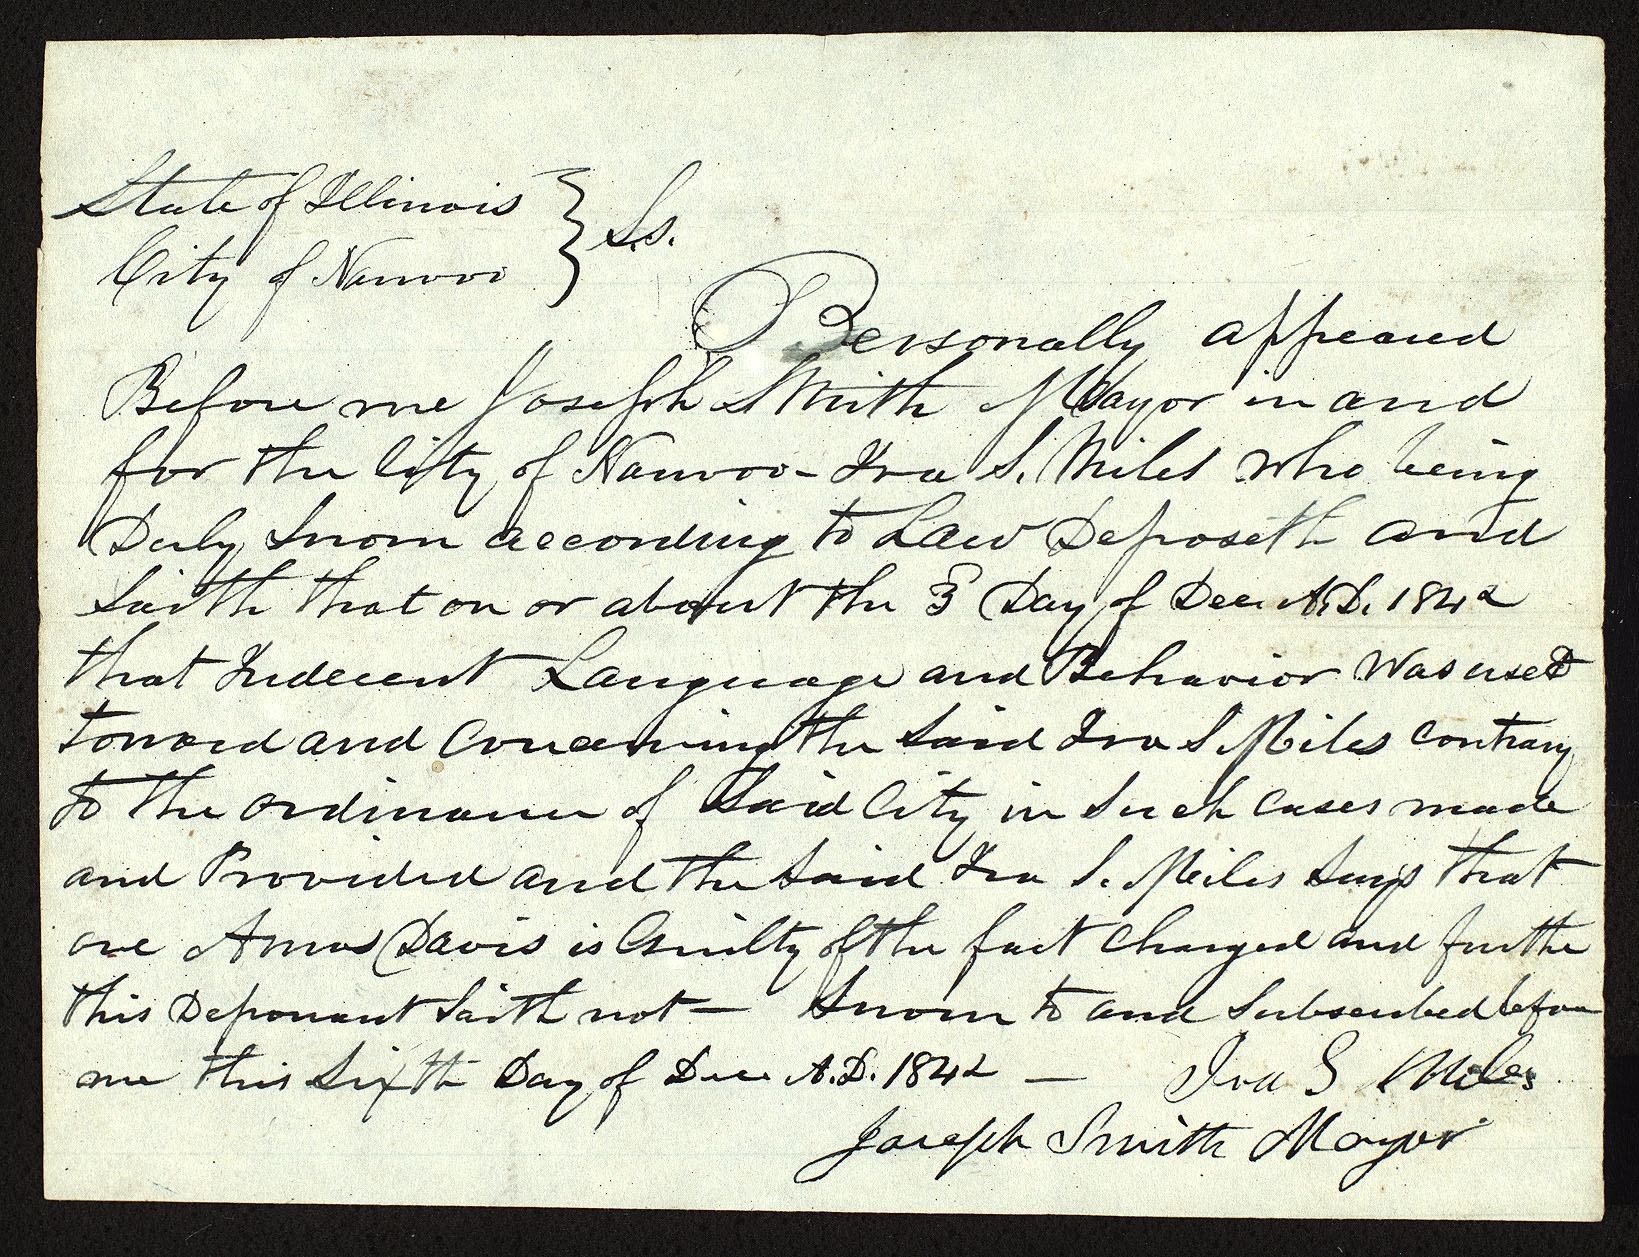 State of Illinois } Ss.
City of Nauvoo
Personally appeared
Before me Joseph Smith Mayor in and
for the City of Nauvoo – Ira S. Miles who being
Duly Sworn according to Law Deposeth and
Saith that on or about the 3 Day of Dec. A.D. 1842
that Indecent Language and Behavior Was used
toward and Concerning the Said Ira S Miles contrary
to the ordinance of Said City in Such Cases made
and Provided and the Said Ira S. Miles Says that
one Amos Davis is Guilty of the fact Charged and further
this Deponant Saith not — Sworn to and Subscribed before
me this Sixth Day of Dec. A.D. 1842 — Ira S Miles
Joseph Smith Mayor